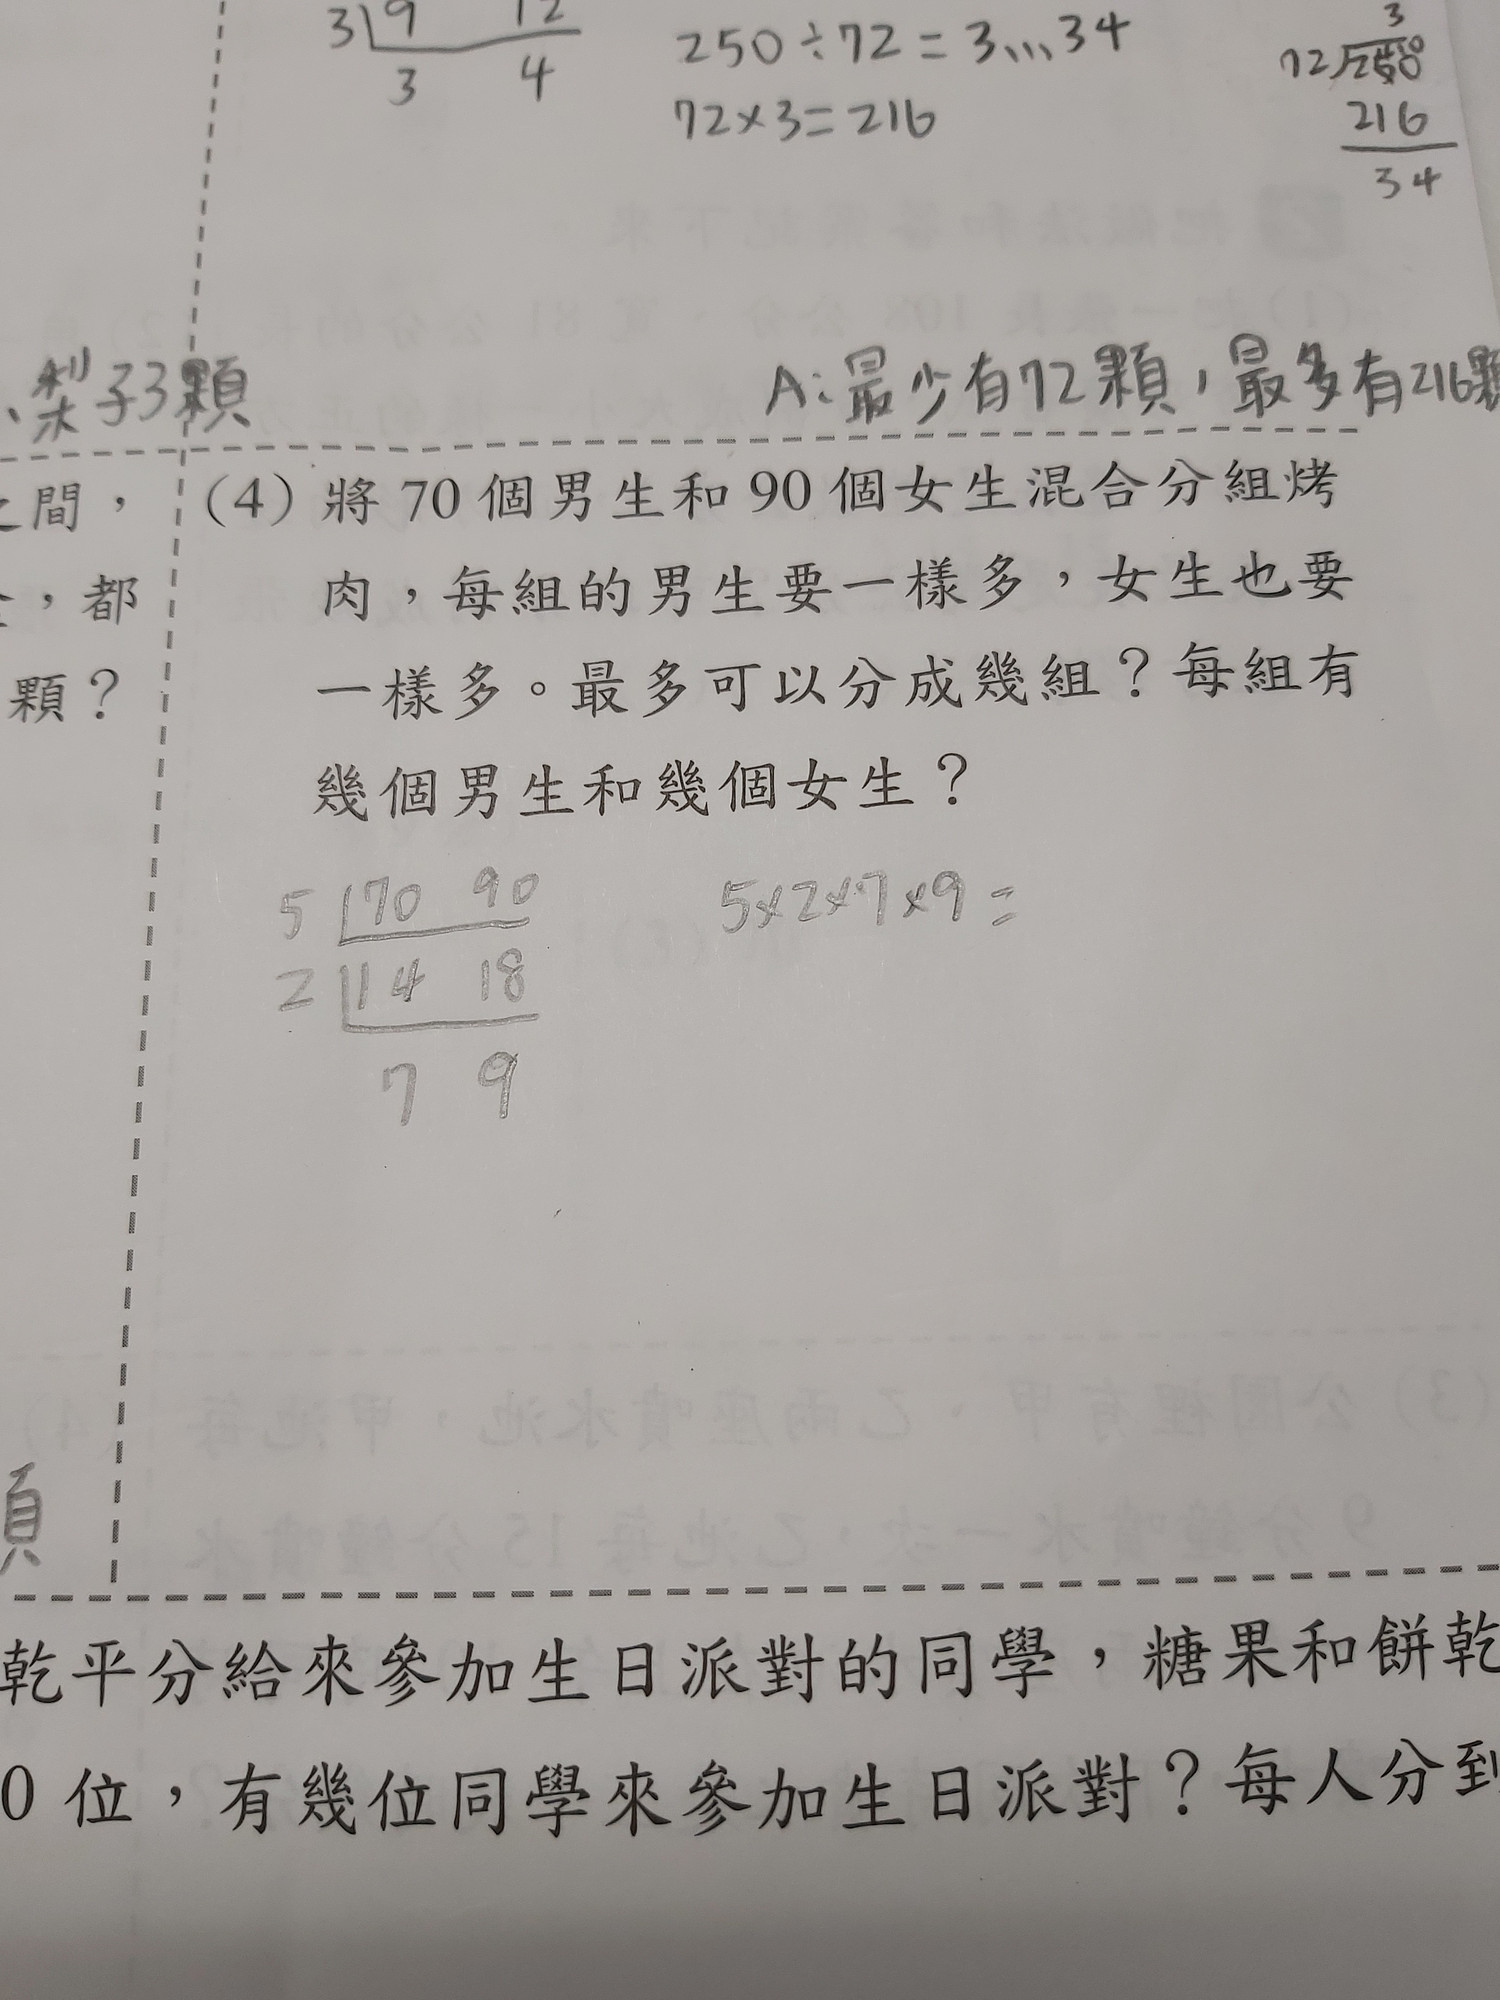 3 9 12
3 4
250÷72=3...34
72×3=216
3
72 250
216
34
、梨子3顆
A:最少有72顆,最多有216顆
之間,
,都
顆?
(4)將70個男生和90個女生混合分組烤
肉,每組的男生要一樣多,女生也要
一樣多。最多可以分成幾組?每組有
幾個男生和幾個女生?
5 70 90
2 14 18
7 9
5×2×7×9=
乾平分給來參加生日派對的同學,糖果和餅乾
0位,有幾位同學來參加生日派對?每人分到